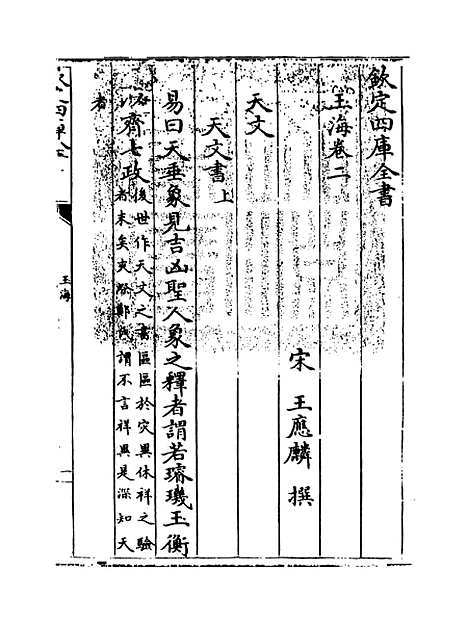 欽定四庫全書
玉海卷二
宋 王應麟 撰
天文
天文書上
易曰天垂象見吉凶聖人象之釋者謂若璿璣玉衡
以齊七政後世作天文之書區區於災異休祥之驗
者末矣夾漈鄭氏謂不言祥異是深知天
者
玉海